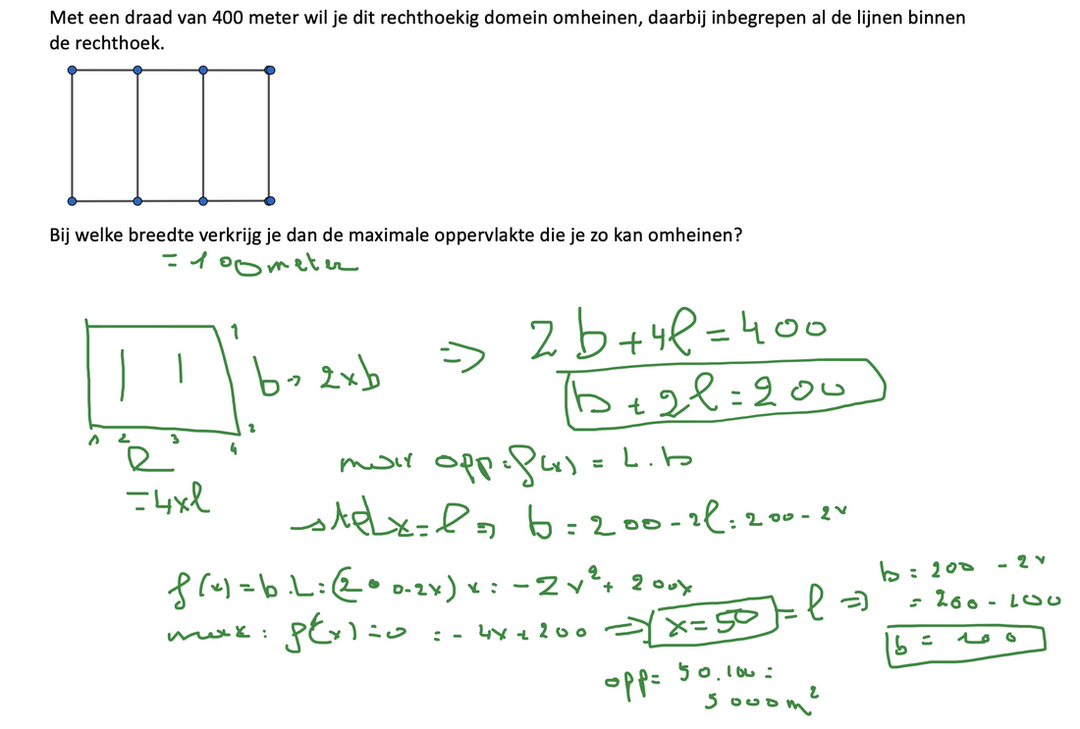 Met een draad van 400 meter wil je dit rechthoekig domein omheinen, daarbij inbegrepen al de lijnen binnen
de rechthoek.
Bij welke breedte verkrijg je dan de maximale oppervlakte die je zo kan omheinen?
= 100 meter
1
b → 2xb
=> 2b+4l = 400
b + 2l = 200
1 2 3 4 2
l
= 4xl
opp = f(x) = L.b
stel x = l => b = 200 - 2l = 200 - 2x
f(x) = b.L = (200-2x) x = -2x² + 200x
max : f'(x) = 0 = -4x + 200 => x = 50 = l =>
b = 200 - 2x
= 200 - 100
b = 100
opp = 50.100 =
5000m²